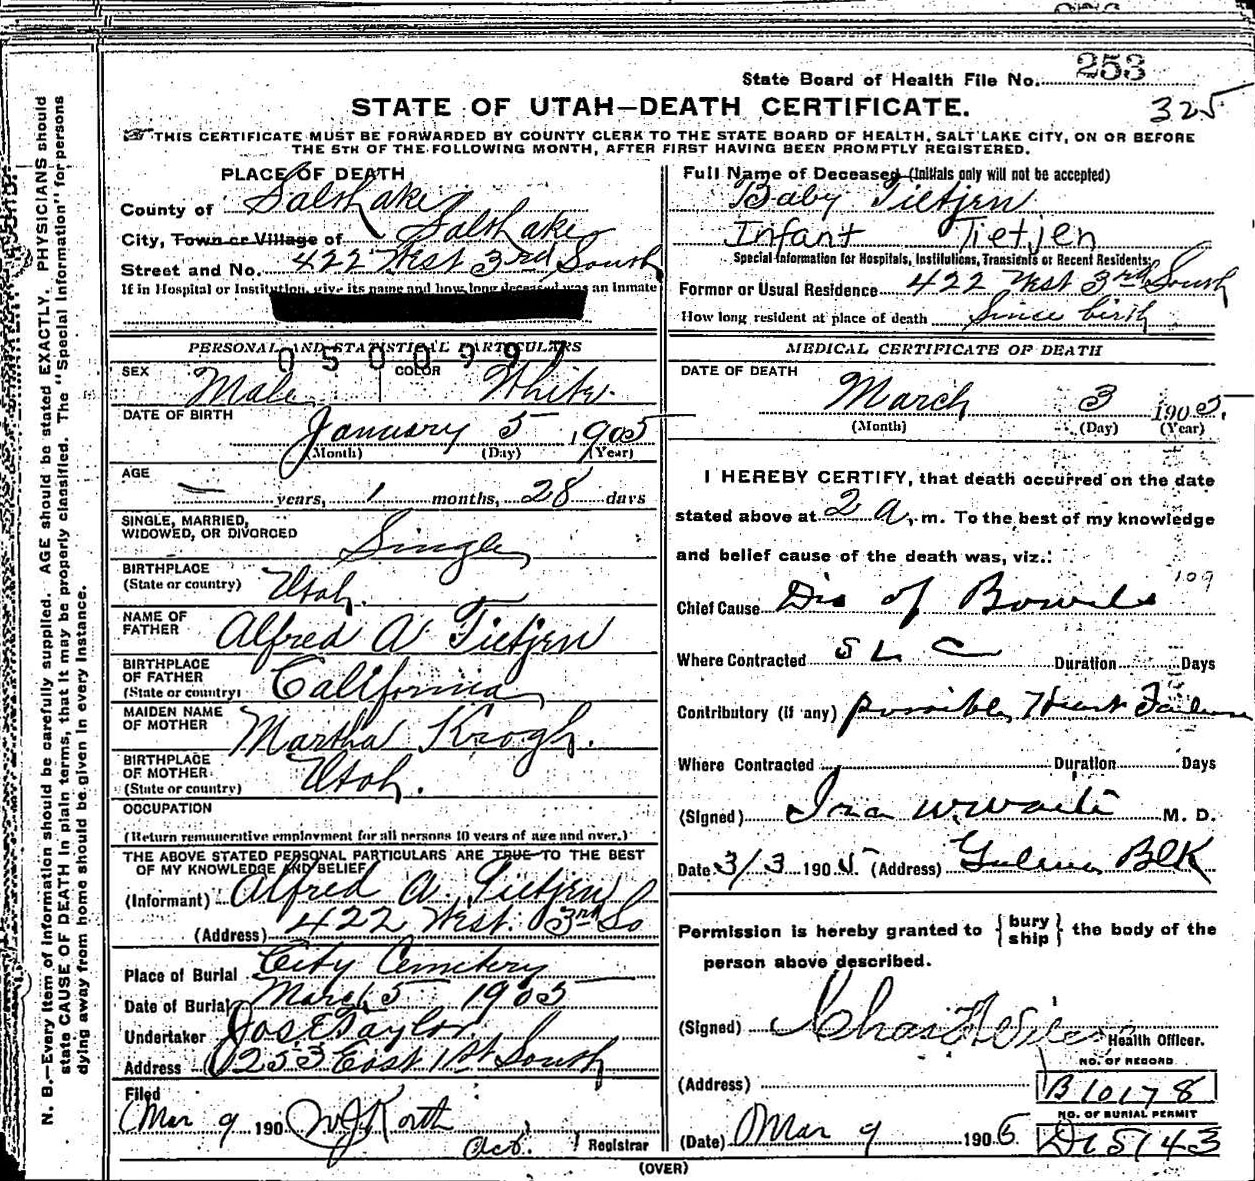 State Board of Health File No. 253
325
STATE OF UTAH—DEATH CERTIFICATE.
THIS CERTIFICATE MUST BE FORWARDED BY COUNTY CLERK TO THE STATE BOARD OF HEALTH, SALT LAKE CITY, ON OR BEFORE
THE 5TH OF THE FOLLOWING MONTH, AFTER FIRST HAVING BEEN PROMPTLY REGISTERED.
N. B.—Every item of information should be carefully supplied. AGE should be stated EXACTLY. PHYSICIANS should
state CAUSE OF DEATH in plain terms, that it may be properly classified. The "Special Information" for persons
dying away from home should be given in every instance.
PLACE OF DEATH
County of Salt Lake
City, Town or Village of Salt Lake
Street and No. 422 West 3rd South
If in Hospital or Institution, give its name and how long deceased was an Inmate
PERSONAL AND STATISTICAL PARTICULARS
0500997
SEX Male COLOR White
DATE OF BIRTH
January 5 1905
(Month) (Day) (Year)
AGE
— years, 1 months, 28 days
SINGLE, MARRIED,
WIDOWED, OR DIVORCED Single
BIRTHPLACE
(State or country) Utah.
NAME OF
FATHER Alfred A Tietjen
BIRTHPLACE
OF FATHER
(State or country) California
MAIDEN NAME
OF MOTHER Martha Krogh.
BIRTHPLACE
OF MOTHER
(State or country) Utah.
OCCUPATION
(Return remunerative employment for all persons 10 years of age and over.)
THE ABOVE STATED PERSONAL PARTICULARS ARE TRUE TO THE BEST
OF MY KNOWLEDGE AND BELIEF
(Informant) Alfred A. Tietjen
(Address) 422 West. 3rd So
Place of Burial City Cemetery
Date of Burial March 5 1905
Undertaker Jos E Taylor
Address 253 East 1st South
Filed
Mar 9 190
Registrar
Full Name of Deceased (Initials only will not be accepted)
Baby Tietjen
Infant Tietjen
Special Information for Hospitals, Institutions, Transients or Recent Residents:
Former or Usual Residence 422 West 3rd South
How long resident at place of death Since birth
MEDICAL CERTIFICATE OF DEATH
DATE OF DEATH
March 3 1905.
(Month) (Day) (Year)
I HEREBY CERTIFY, that death occurred on the date
stated above at 2 a. m. To the best of my knowledge
and belief cause of the death was, viz.:
109
Chief Cause Dis of Bowels
Where Contracted S L C Duration Days
Contributory (if any) possible Heart Failure
Where Contracted Duration Days
(Signed) Ira M. D.
Date 3/3 1905. (Address) Blk
Permission is hereby granted to {bury ship} the body of the
person above described.
(Signed) Chas Health Officer.
(Address)
NO. OF RECORD
B10178
NO. OF BURIAL PERMIT
D15143
(Date) Mar 9 1905
(OVER)